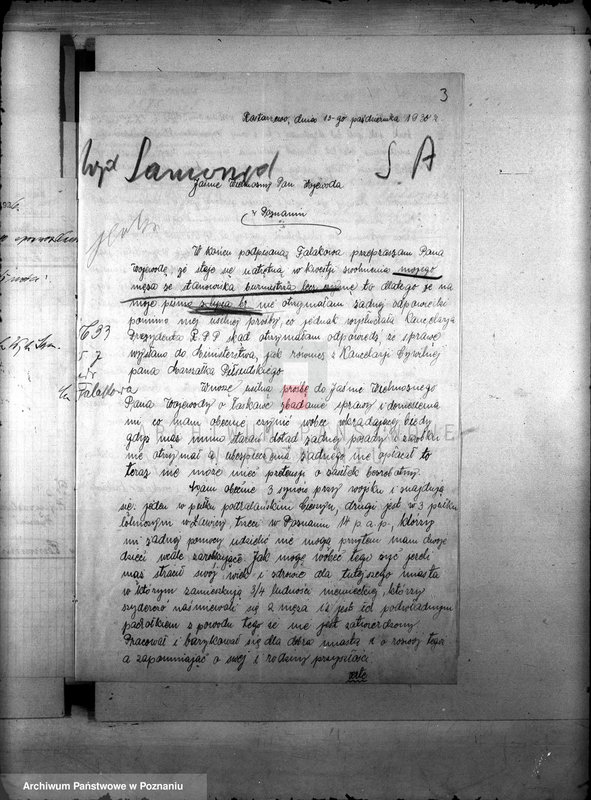 3
dnia 13-go października 1930 r.
Samorząd
S. A
Jaśnie Wielmożny Pan Wojewoda
w Poznaniu
W końcu podpisana Falakowa przepraszam Pana
Wojewodę, że staję się natrętną w kwestji zwolnienia mojego
męża ze stanowiska burmistrza lecz czynię to dlatego że na
moje pismo z lipca br. nie otrzymałam żadnej odpowiedzi
pomimo mej usilnej prośby, co jednak wysłuchała Kancelarja
Prezydenta R.P.P skąd otrzymałam odpowiedź, że sprawę
wysłano do Ministerstwa, jak również z Kancelarji Cywilnej
pana Marszałka Piłsudskiego.
Falakowa
Wnoszę usilną prośbę do Jaśnie Wielmożnego
Pana Wojewody o łaskawe zbadanie sprawy i doniesienia
mi co mam obecnie czynić wobec wkradającej biedy
gdyż mąż mimo starań dotąd żadnej posady i zarobku
nie otrzymał a ubezpieczenia żadnego nie opłacał to
teraz nie może mieć pretensji o zasiłek bezrobotny.
Mam obecnie 3 synów przy wojsku i znajdują
się: jeden w pułku podhalańskim Cieszyn, drugi jest w 3 pułku
lotniczym w Ławicy, trzeci w Poznaniu 14 p.a.p., którzy
mi żadnej pomocy udzielić nie mogą przytem mam dwoje
dzieci wcale zarobkujące. Jak mogę wobec tego żyć jeśli
mąż stracił swój wiek i zdrowie dla tutejszego miasta
w którym zamieszkują 3/4 ludności niemieckiej, którzy
szyderczo naśmiewali się z męża iż jest ich podwładnym
parobkiem z powodu tego że nie jest zatwierdzony.
Pracował i barykował się dla dobra miasta i o rozwój tegoż
a zapominając o swej i rodziny przyszłości
Archiwum Państwowe w Poznaniu